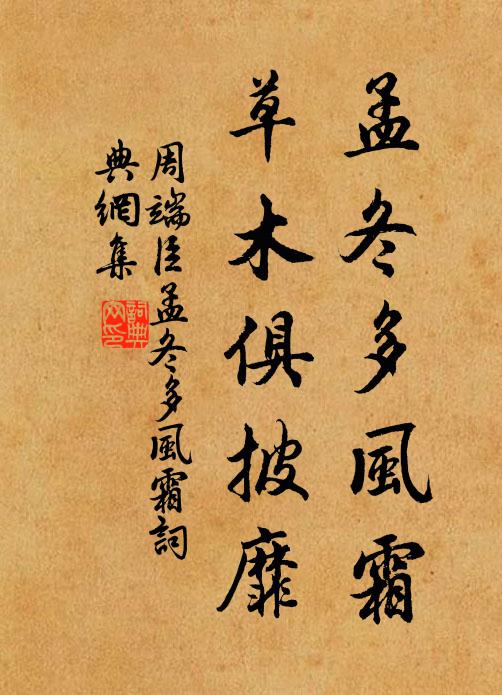 孟冬多風霜
草木俱披靡
周端臣孟冬多風霜詞
典網集
詞典
网印